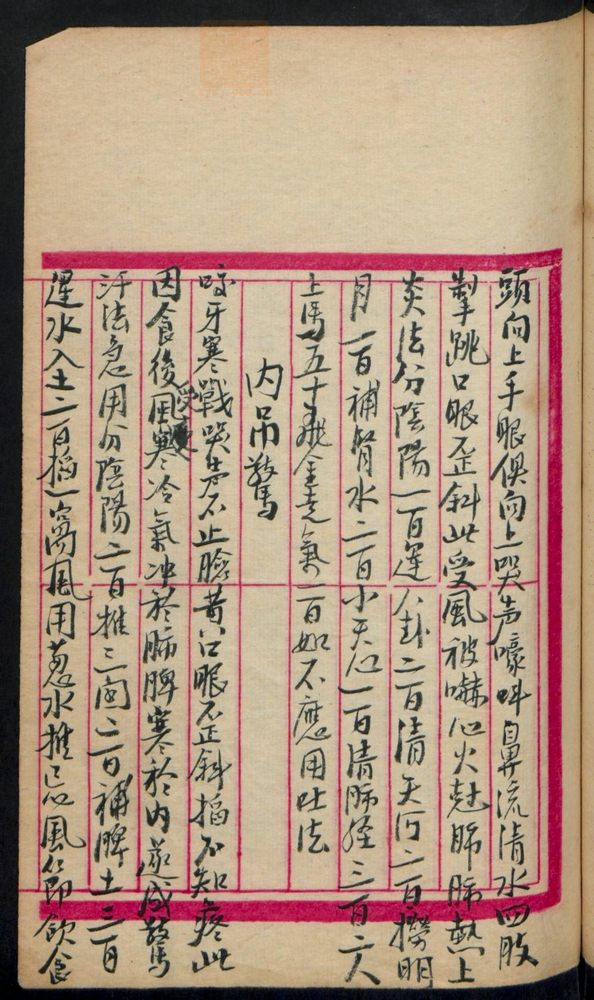 頭向上手眼俱向上哭声嚎呌鼻流清水四肢
掣跳口眼歪斜此受風被嚇心火尅肺肺熱上
炎法分陰陽一百運八卦二百清天河二百撈明
月一百補腎水二百小天心一百清肺经三百二人
上馬五十飛金走氣一百如不應用吐法
内吊驚
咬牙寒戰哭声不止臉黄口眼歪斜掐不知疼此
因食後受風寒冷氣冲於肺脾寒於内遂成驚
汗法急用分陰陽二百推三関二百補脾土三百
運水入土二百掐一窩風用葱水推忌風節飲食